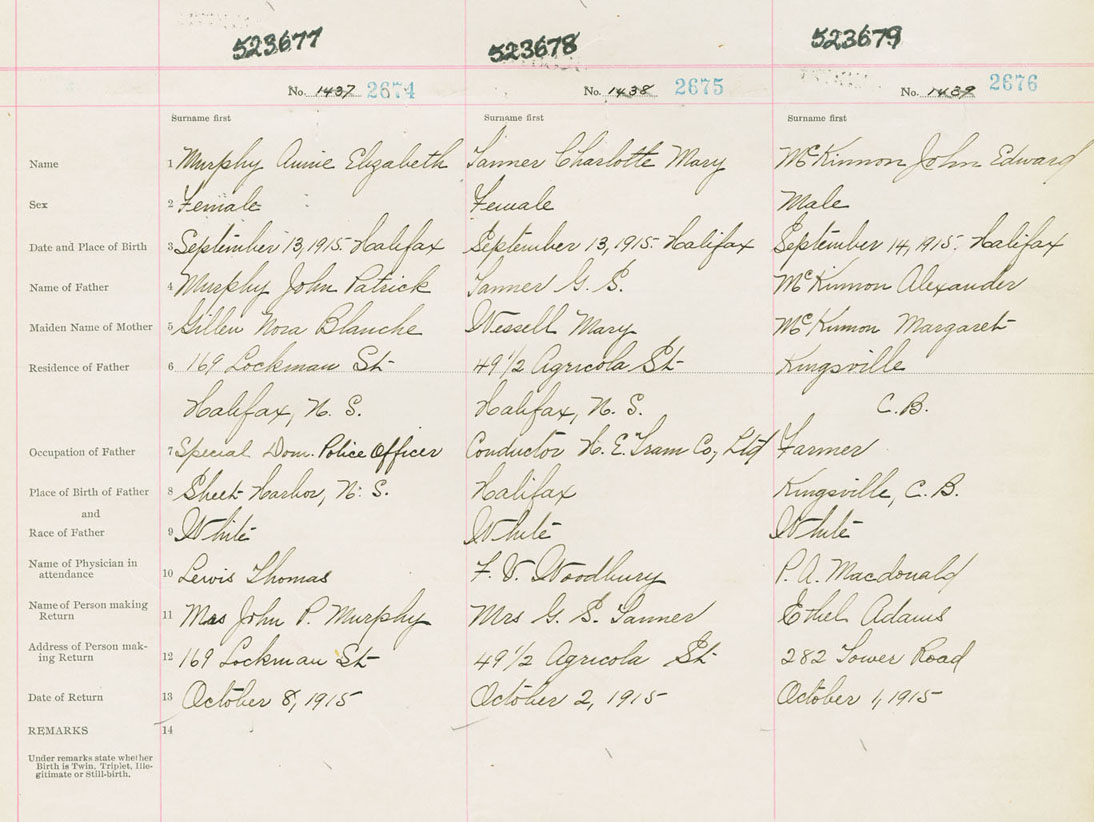 523677 523678 523679
No. 1437 2674 No. 1438 2675 No. 1439 2676
Surname first Surname first Surname first
Name 1 Murphy Annie Elizabeth Tanner Charlotte Mary McKinnon John Edward
Sex 2 Female Female Male
Date and Place of Birth 3 September 13, 1915 - Halifax September 13, 1915 - Halifax September 14, 1915. Halifax
Name of Father 4 Murphy John Patrick Tanner G. S. McKinnon Alexander
Maiden Name of Mother 5 Gillen Nora Blanche Wessell Mary McKinnon Margaret
Residence of Father 6 169 Lockman St 49 1/2 Agricola St Kingsville
Halifax, N. S. Halifax, N. S. C. B.
Occupation of Father 7 Special Dom. Police Officer Conductor N. E. Tram Co, Ltd Farmer
Place of Birth of Father 8 Sheet Harbor, N. S. Halifax Kingsville, C. B.
and
Race of Father 9 White White White
Name of Physician in
attendance 10 Lewis Thomas F. V. Woodbury P. A. Macdonald
Name of Person making
Return 11 Mrs John P. Murphy Mrs G. S. Tanner Ethel Adams
Address of Person mak-
ing Return 12 169 Lockman St 49 1/2 Agricola St 282 Tower Road
Date of Return 13 October 8, 1915 October 2, 1915 October 1, 1915
REMARKS 14
Under remarks state whether
Birth is Twin, Triplet, Ille-
gitimate or Still-birth.